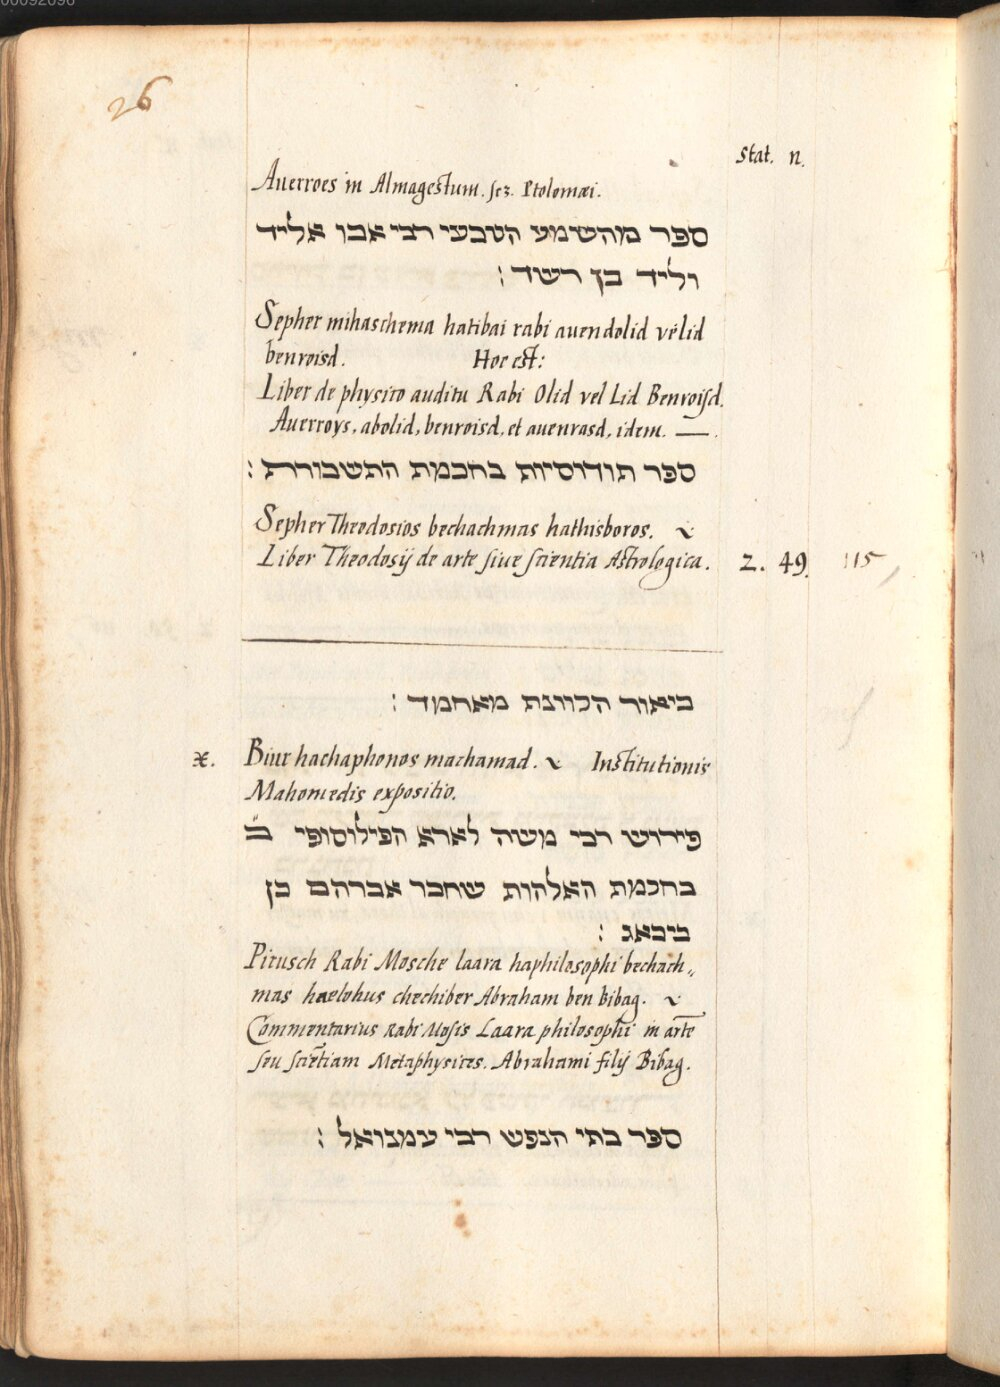 26
Stat. n.
Auerroes in Almagestum. scz. Ptolomæi.
ספר מהשמע הטבעי רבי אבו אליד
וליד בן רשד :
Sepher mihaschema hatibai rabi auendolid velid
benroisd. Hoc est:
Liber de physico auditu Rabi Olid vel Lid Benroisd.
Auerroys, abolid, benroisd, et auenrasd, idem. —.
ספר תודוסיות בחכמת התשבורת :
Sepher Theodosios bechachmas hathisboros. ~
Liber Theodosij de arte siue scientia Astrologica. 2. 49. 115
ביאור הכוונת מאחמד :
x. Biur hachaphonos machamad. ~ Institutionis
Mahomedis expositio.
פירוש רבי משה לארא הפילוסופי ב
בחכמת האלהות שחבר אברהם בן
ביבאג :
Pirusch Rabi Mosche laara haphilosophi bechach„
mas haelohus chechiber Abraham ben bibag. ~
Commentarius Rabi Mosis Laara philosophi in arte
seu sciētiam Metaphysices. Abrahami filij Bibag.
ספר בתי הנפש רבי עמנואל :